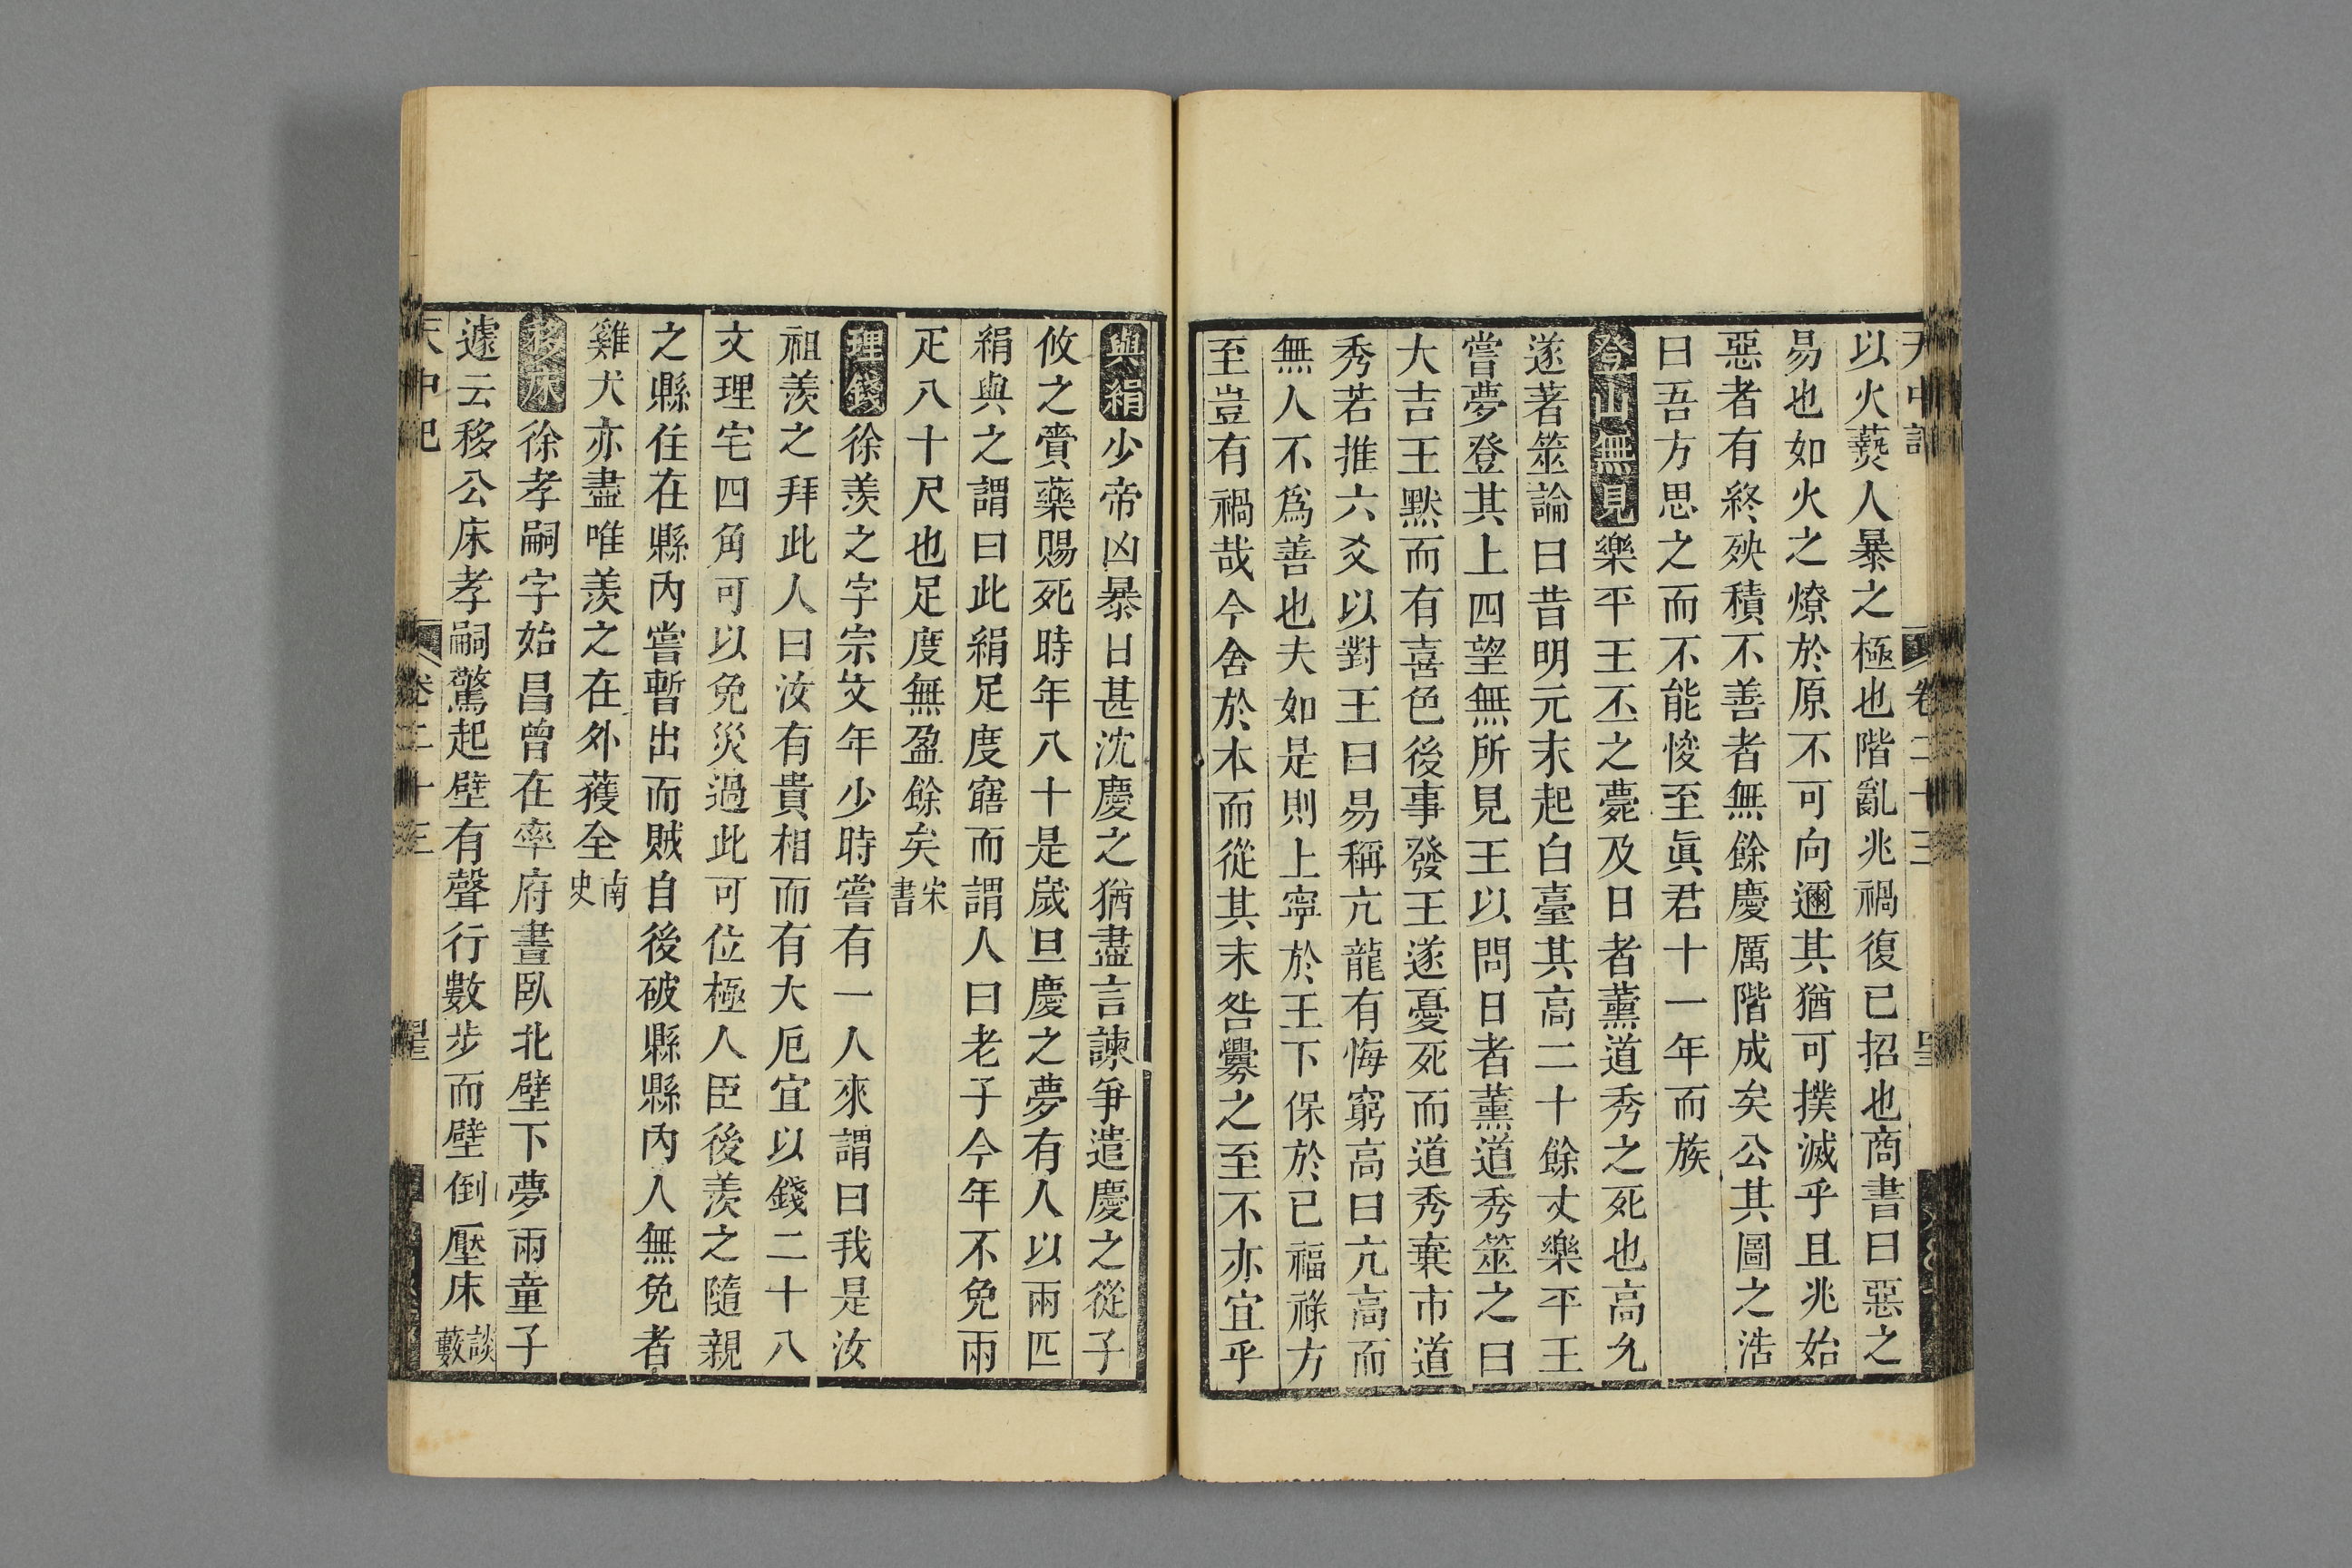 以火爇人暴之極也階亂兆禍復已招也商書曰惡之
易也如火之燎於原不可向邇其猶可撲滅乎且兆始
惡者有終殃積不善者無餘慶厲階成矣公其圖之浩
曰吾方思之而不能悛至眞君十一年而族
登山無見樂平王丕之薨及日者董道秀之死也高允
遂著筮論曰昔明元末起白臺其高二十餘丈樂平王
嘗夢登其上四望無所見王以問日者董道秀筮之曰
大吉王默而有喜色後事發王遂憂死而道秀棄市道
秀若推六爻以對王曰易稱亢龍有悔窮高曰亢高而
無人不爲善也夫如是則上寧於王下保於已福祿方
至豈有禍哉今舍於本而從其末咎釁之至不亦宜乎
與絹少帝凶暴日甚沈慶之猶盡言諫爭遣慶之從子
攸之賫藥賜死時年八十是歲旦慶之夢有人以兩匹
絹與之謂曰此絹足度寤而謂人曰老子今年不免兩
疋八十尺也足度無盈餘矣宋書
理錢徐羨之字宗文年少時嘗有一人來謂曰我是汝
祖羨之拜此人曰汝有貴相而有大厄宜以錢二十八
文理宅四角可以免災過此可位極人臣後羨之隨親
之縣住在縣內嘗暫出而賊自後破縣縣內人無免者
雞犬亦盡唯羨之在外獲全南史
移床徐孝嗣字始昌曾在率府晝臥北壁下夢兩童子
遽云移公床孝嗣驚起壁有聲行數步而壁倒壓床談藪
天中記 卷二十三